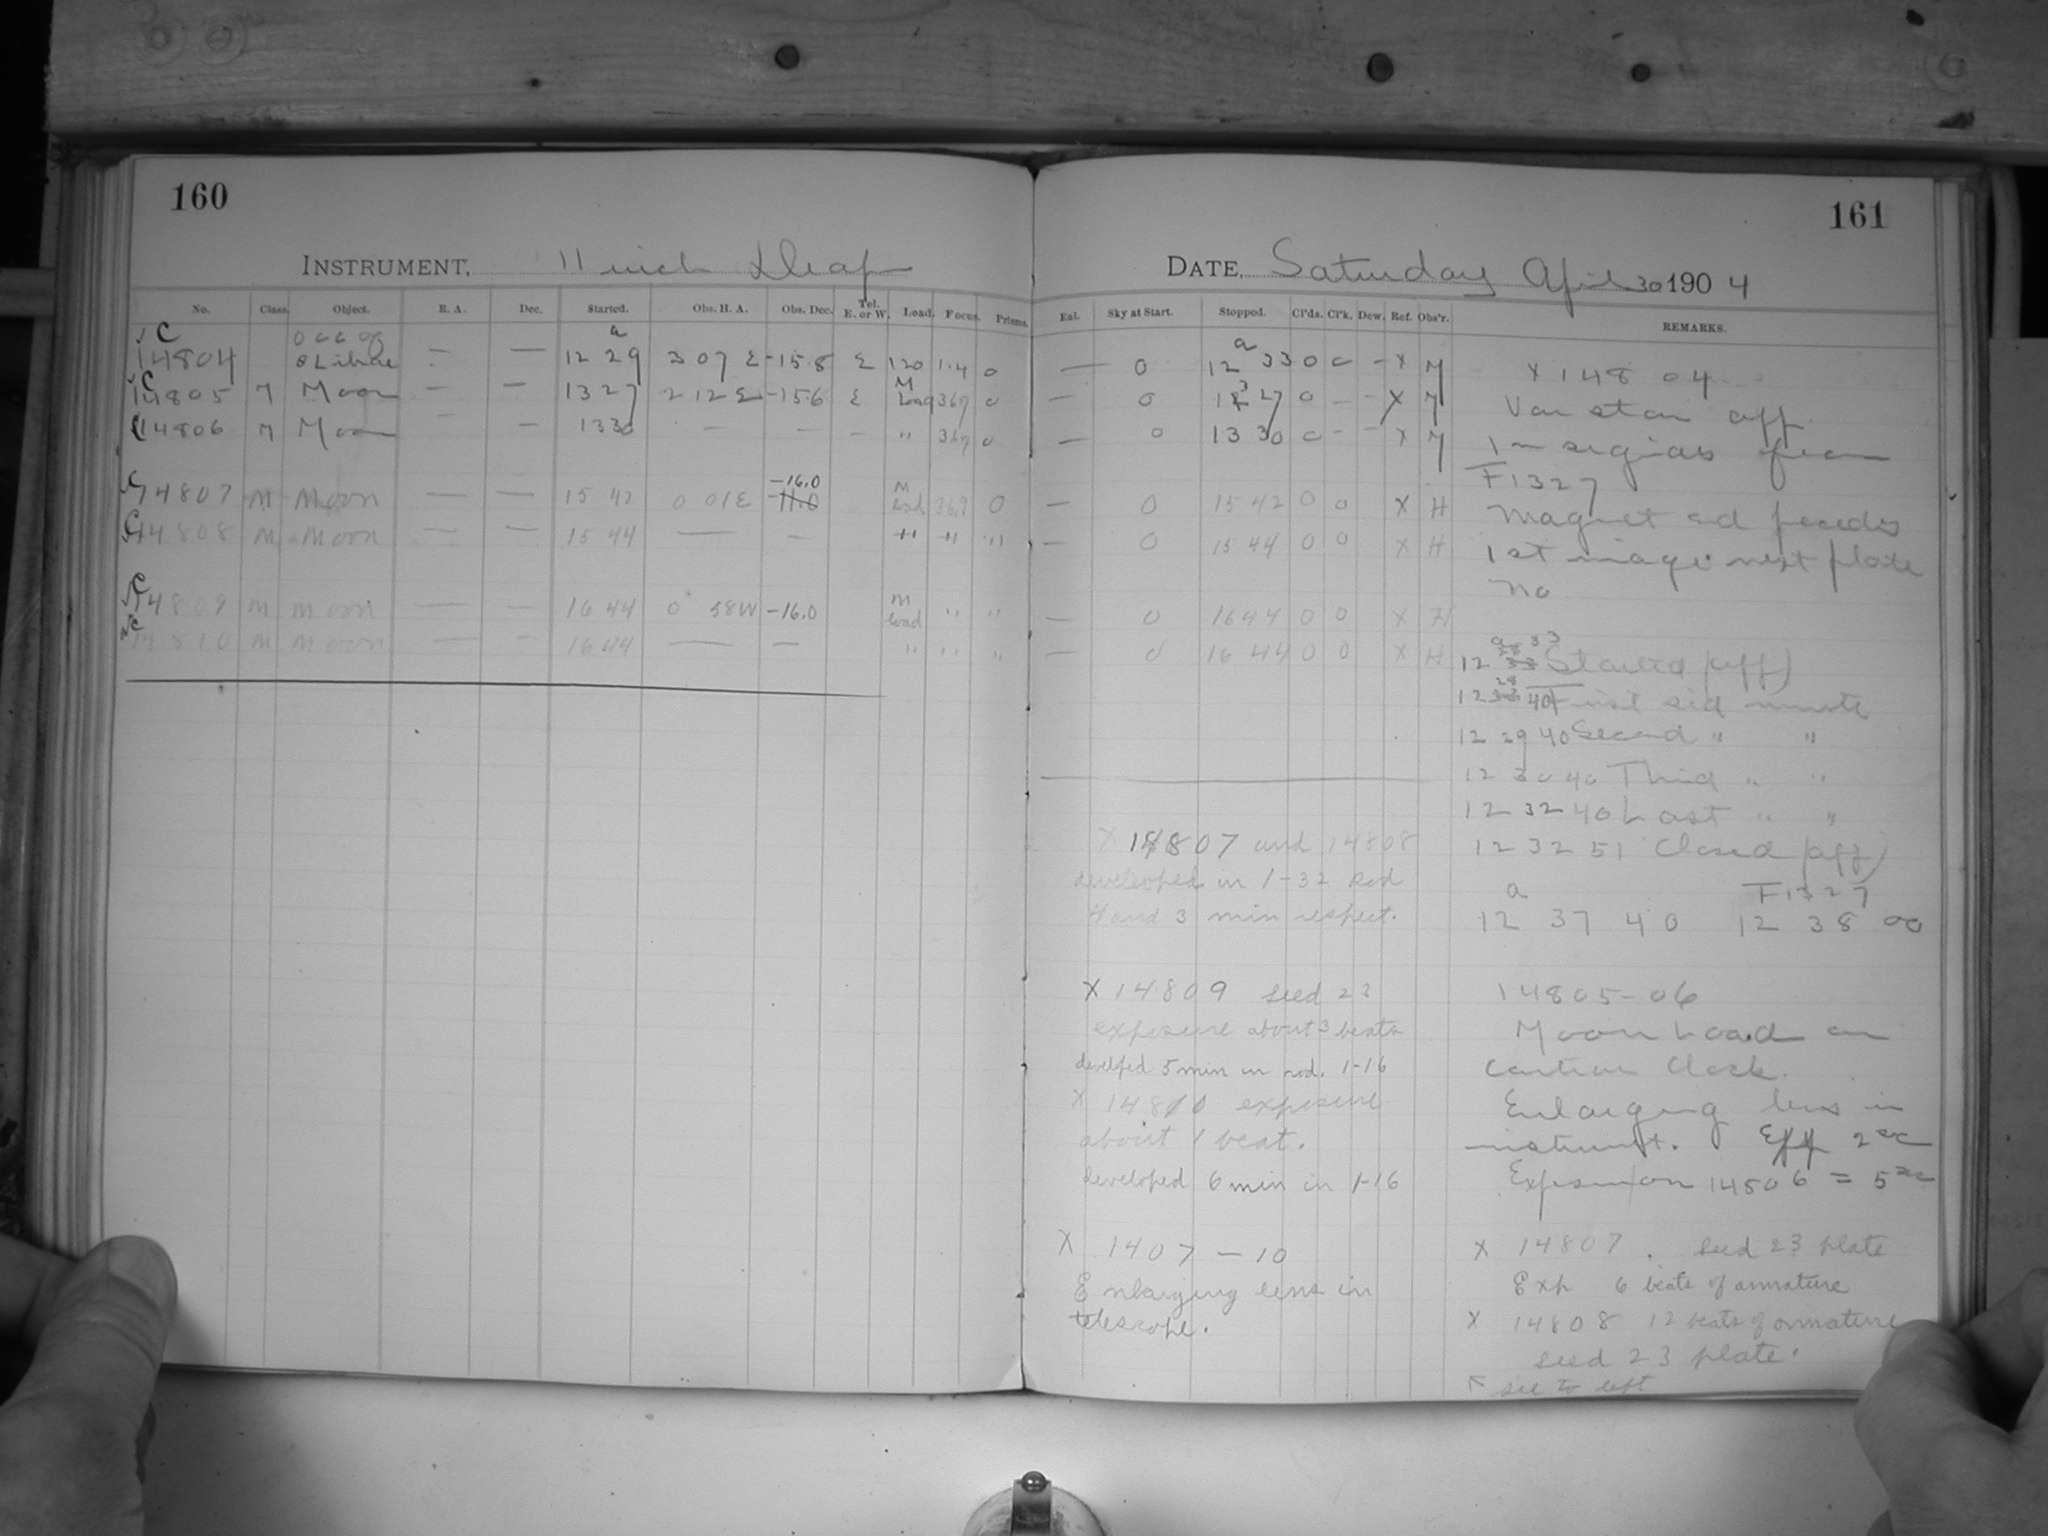 160
INSTRUMENT, 11 inch Draper
No. Class. Object. R. A. Dec. Started. Obs. H. A. Obs. Dec. Tel. E. or W. Load. Focus. Prisms.
C 14804 Occ of θ Librae — — 12 29 3 07 E -15.8 E 120 1.4 0
C 14805 M Moon — — 13 27 2 12 E -15.6 E M Load 36.9 0
C 14806 M Moon — — 13 30 — — — " 36.9 0
C 14807 M Moon — — 15 42 0 01 E -16.0 M Load 36.9 0
C 14808 M Moon — — 15 44 — — " " "
C 14809 M Moon — — 16 44 0 58 W -16.0 M Load " "
C 14810 M Moon — — 16 44 — — " " "
161
DATE, Saturday April 30 1904
Exl. Sky at Start. Stopped. Cl'ds. Cl'k. Dew. Ref. Obs'r. REMARKS.
— 0 12 33 0 0 — X M
— 0 13 27 0 — — X M
— 0 13 30 0 — — X M
— 0 15 42 0 0 X H
— 0 15 44 0 0 X H
— 0 16 44 0 0 X H
— 0 16 44 0 0 X H
X 14807 and 14808
developed in 1-32 Rod
4 and 3 min respect.
X 14809 seed 23
exposure about 3 beats
develped 5 min in rod. 1-16
X 14810 exposure
about 1 beat.
developed 6 min in 1-16
X 1407 — 10
Enlarging lens in
telescope.
X 14804
F1327
1st image next plate
No
12 28 33 Started (off)
12 28 40 First sid minute
12 29 40 Second " "
12 30 40 Third " "
12 32 40 Last " "
12 32 51 Closed (off)
a F1327
12 37 40 12 38 00
14805-06
Moon Load on
Clock.
Enlarging lens in
instrumt. Eff 2 sec
14806 = 5 sec
X 14807. seed 23 plate
Exp 6 beats of armature
X 14808 12 beats of armature
seed 23 plate.
see to left